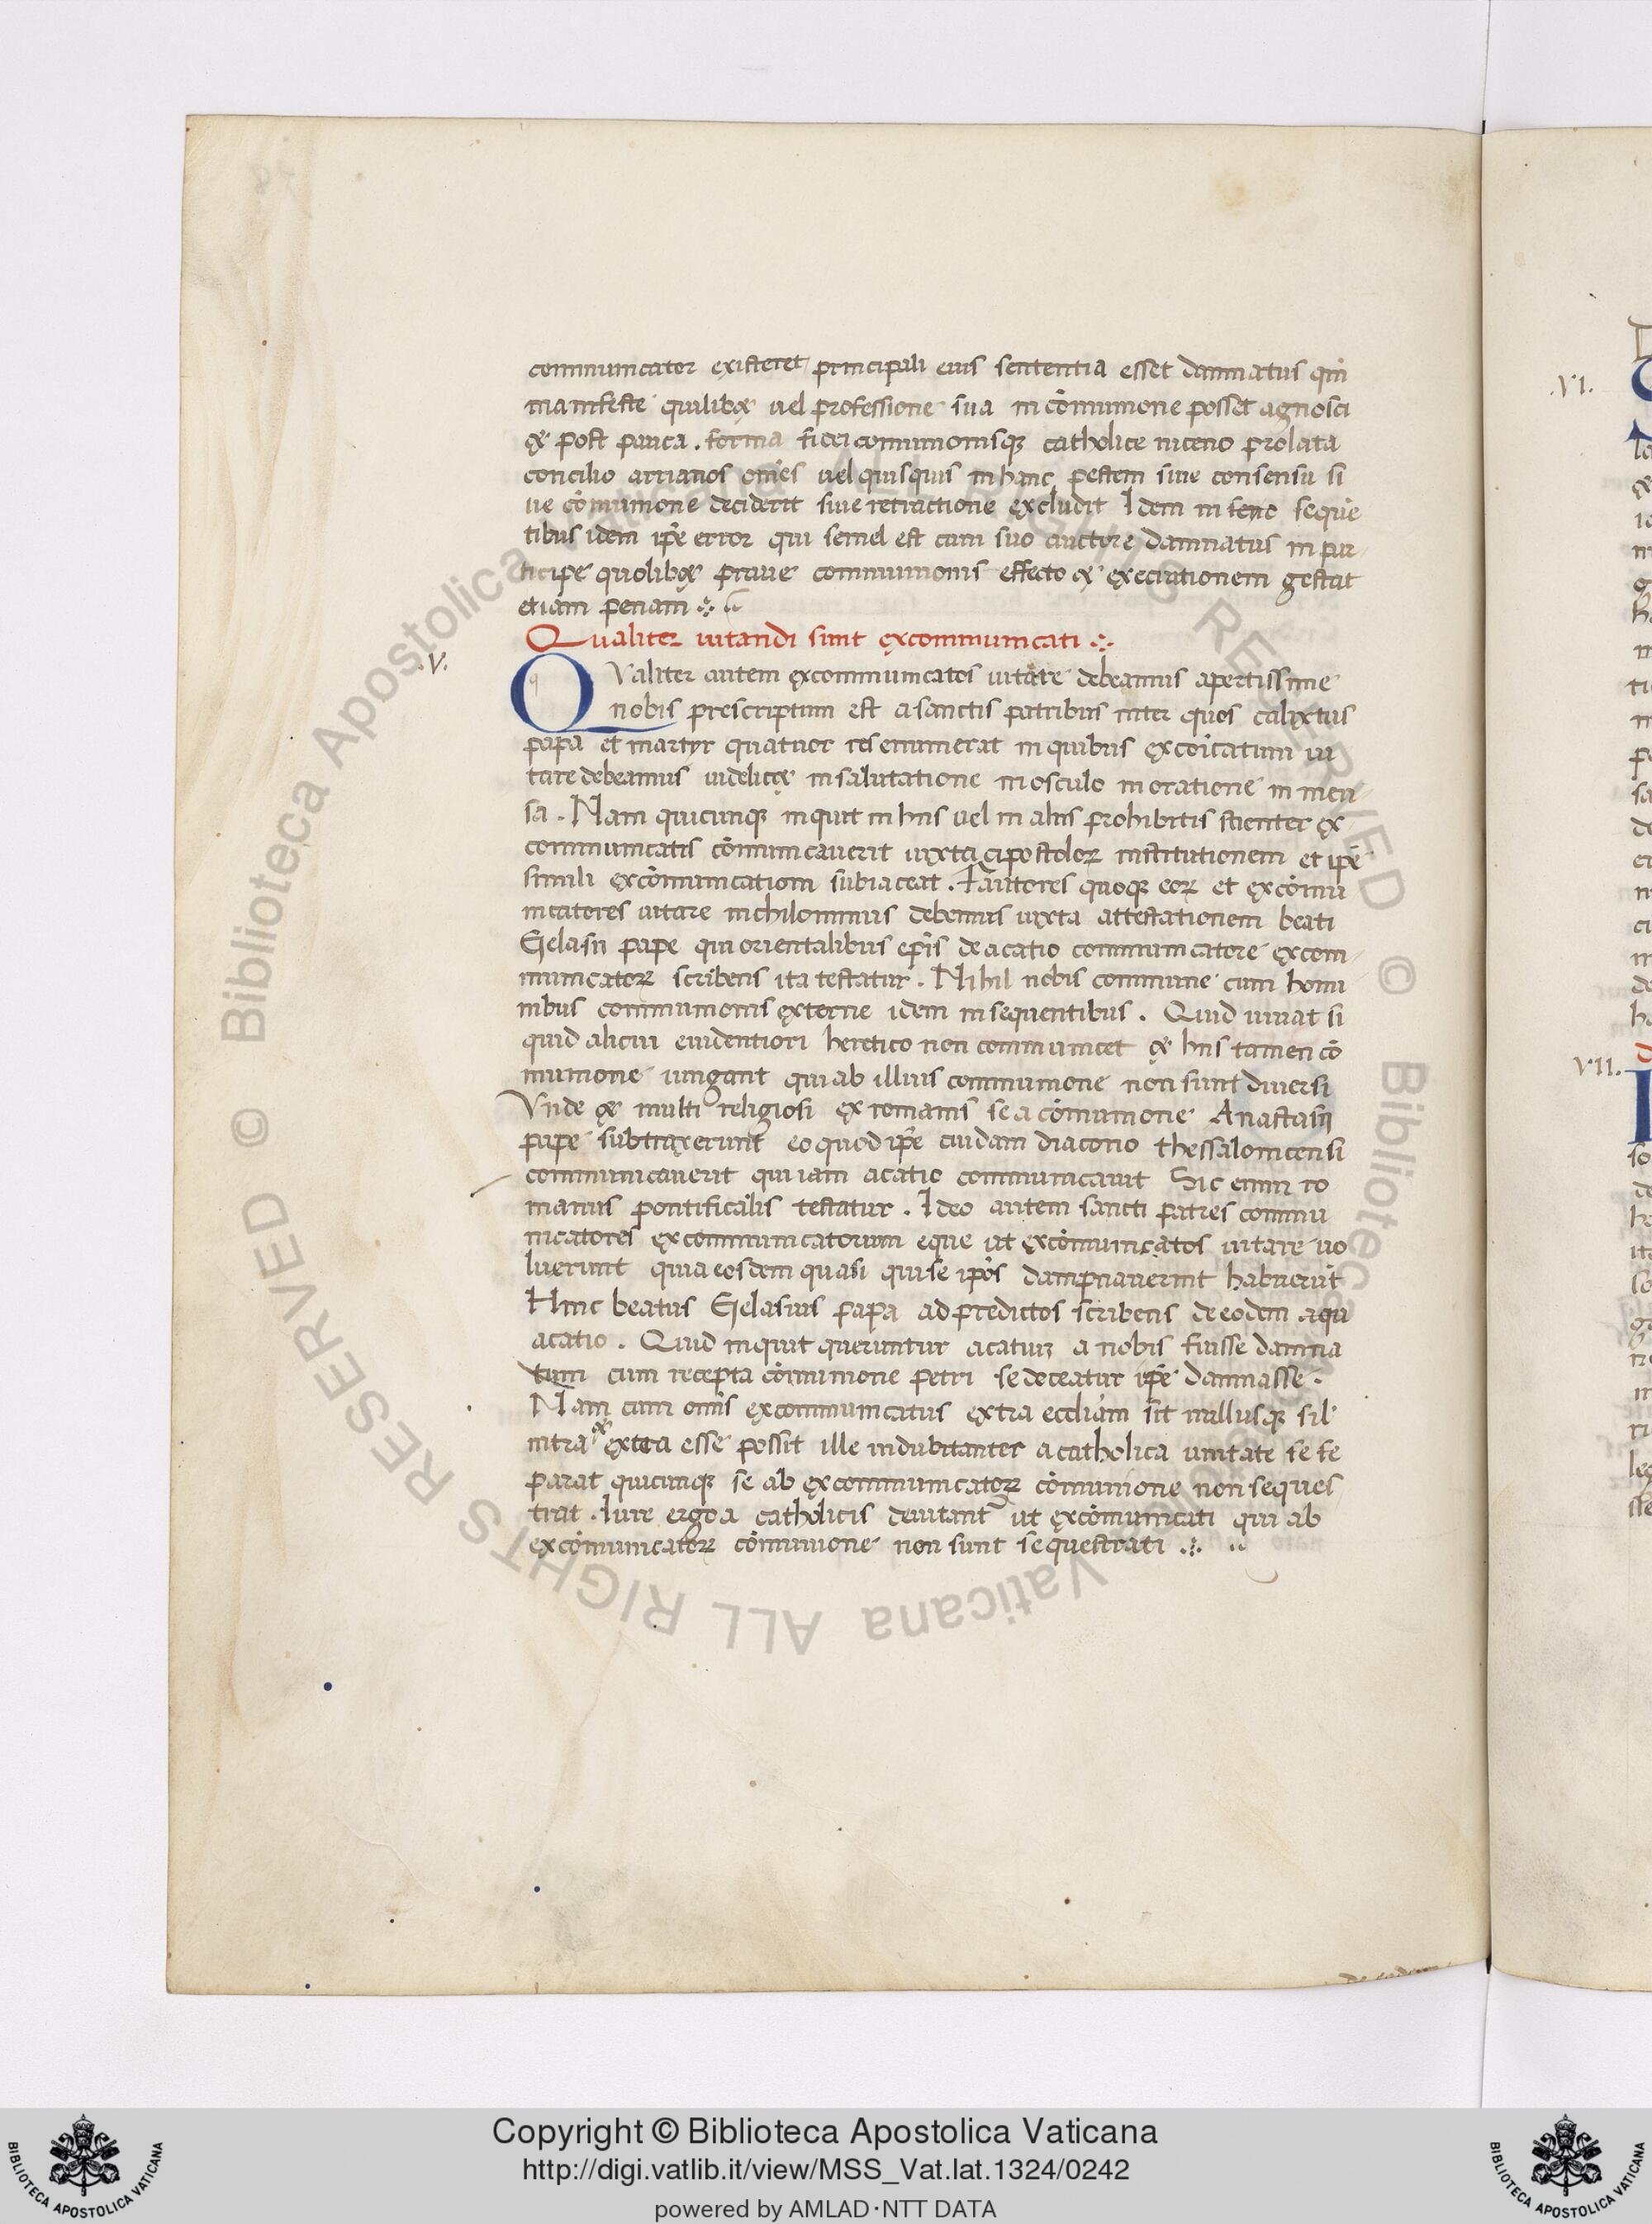 communicator existeret principali eius sententia esset damnatus qm̄
manifeste quilibꝫ uel professione sua in cōmunione posset agnosci
& post pauca . forma fidei comunionisqꝫ catholice niceno prolata
concilio arrianos om̄es uel quisquis in hanc pestem siue consensu si
ue cōmunione deciderit siue retractione excludit Idem in seqūe
tibus idem ip̄e error qui semel est cum suo auctore damnatus in par
ticipe quolibꝫ praue communionis effecto & execrationem gestat
etiam penam
Qualiter uitandi sunt excommunicati
.V.
QValiter autem excommunicatos uitare debeamus apertissime
nobis prescriptum est a sanctis patribus inter quos calixtus
papa et martyr quatuor res enumerat in quibus excōicatum ui
tare debeamus uidelicꝫ in salutatione in osculo in oratione in men
sa . Nam quicunqꝫ inquit in hiis uel in aliis prohibitis scienter ex
communicatis cōmunicauerit iuxta apostoloꝝ institutionem et ip̄e
simili excōmunicationi subiaceat . Fautores quoqꝫ eoꝝ et excōmu
nicatores uitare nichilominus debemus iuxta attestationem beati
Gelasii pape qui orientalibus ep̄is de acatio communicatore excom
municatoꝝ scribens ita testatur . Nihil nobis commune cum homi
nibus communionis externe idem in sequentibus . Quid iuuat si
quid alicui euidentiori heretico non communicet & hiis tamen cō
munione iungant qui ab illius communione non sunt diuersi
Vnde & multi religiosi ex romanis se a cōmunione Anastasii
pape subtraxerunt eo quod ip̄e cuidam diacono thessalonicensi
communicauerit qui iam acatio communicauit Sic enim ro
manus pontificalis testatur . Ideo autem sancti patres commu
nicatores excommunicatorum eque ut excōmunicatos uitare uo
luerunt quia eosdem quasi qui se ip̄os dampnauerint habuerūt
Hinc beatus Gelasius papa ad predictos scribens de eodem aqu
acatio . Quid inquit queruntur acatiuꝫ a nobis fuisse damna
tum cum recepta cōmunione petri se doceatur ip̄e damnasse .
Nam cum om̄is excommunicatus extra eccl̄iam sit nullusqꝫ sil̄
intra & extra esse possit ille indubitanter a catholica unitate se se
parat quicunqꝫ se ab excommunicatoꝝ cōmunione non seques
trat . Iure ergo a catholicis deuitant̄ ut excōmunicati qui ab
excōmunicatoꝝ cōmunione non sunt sequestrati
.VI.
VII.
© Biblioteca Apostolica Vaticana ALL RIGHTS RESERVED
© Biblioteca Apostolica Vaticana ALL RIGHTS RESERVED
Copyright © Biblioteca Apostolica Vaticana
http://digi.vatlib.it/view/MSS_Vat.lat.1324/0242
powered by AMLAD·NTT DATA
BIBLIOTECA APOSTOLICA VATICANA
BIBLIOTECA APOSTOLICA VATICANA